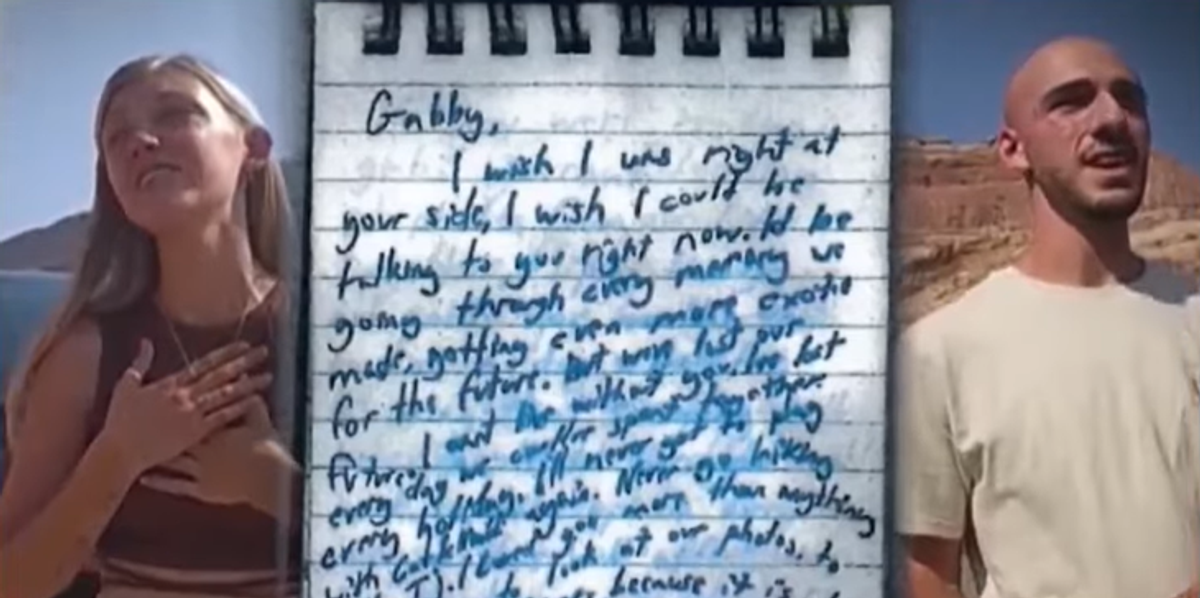 Gabby,
I wish I was right at
your side, I wish I could be
talking to you right now. Id be
going through every memory we
made, getting even more excited
for the future. But we've lost our
future. I can't live without you. I've lost
every day we could've spent together
every holiday. I'll never get to play
with again. Never go hiking
with TJ. I loved you more than anything
look at our photos, to
because it is